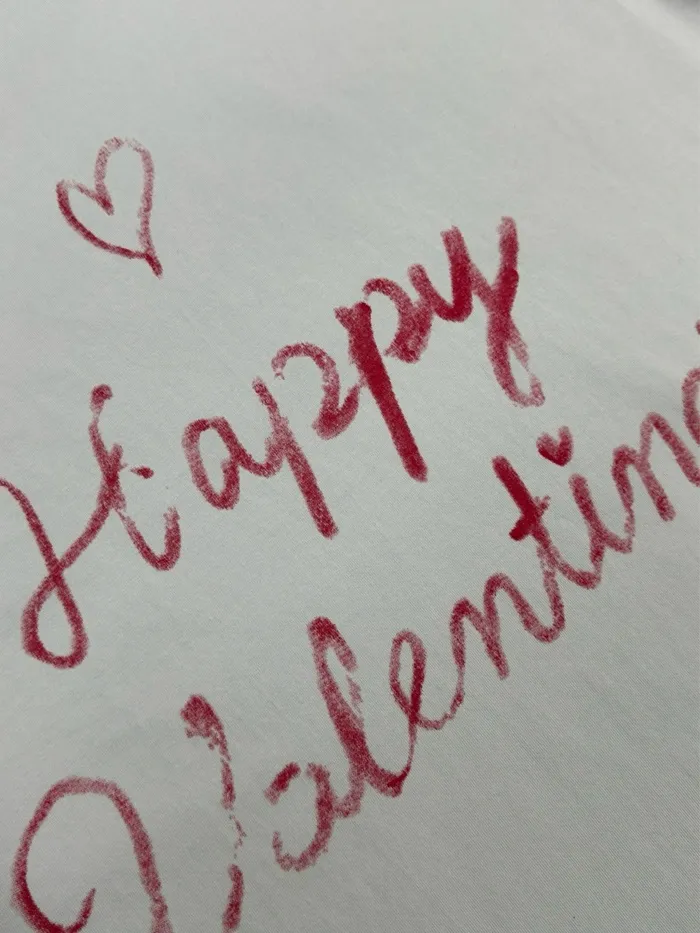 Happy
Valentin